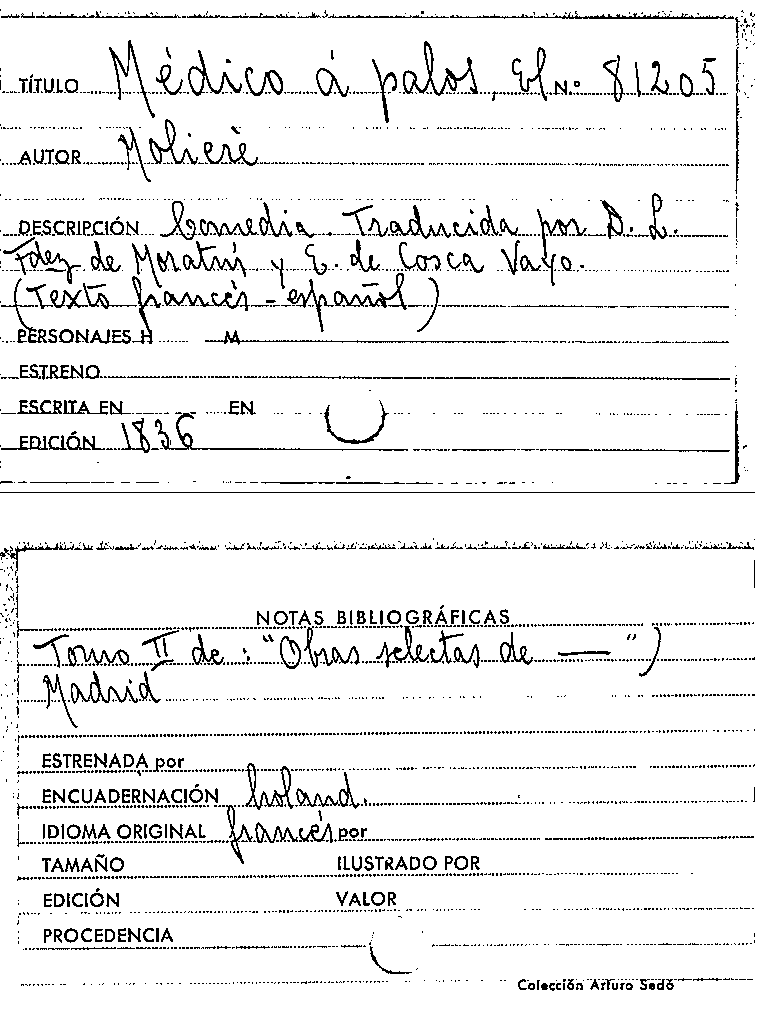 TÍTULO Médico á palos, El N.º 81205
AUTOR Molierè
DESCRIPCIÓN Comedia. Traducida por D. L.
Fdez de Moratín y E. de Cosca Vayo.
(Texto francés - español)
PERSONAJES H M
ESTRENO
ESCRITA EN EN
EDICIÓN 1836
NOTAS BIBLIOGRÁFICAS
Tomo II de : "Obras selectas de — ")
Madrid
ESTRENADA por
ENCUADERNACIÓN holand.
IDIOMA ORIGINAL francés por
TAMAÑO ILUSTRADO POR
EDICIÓN VALOR
PROCEDENCIA
Colección Arturo Sedó